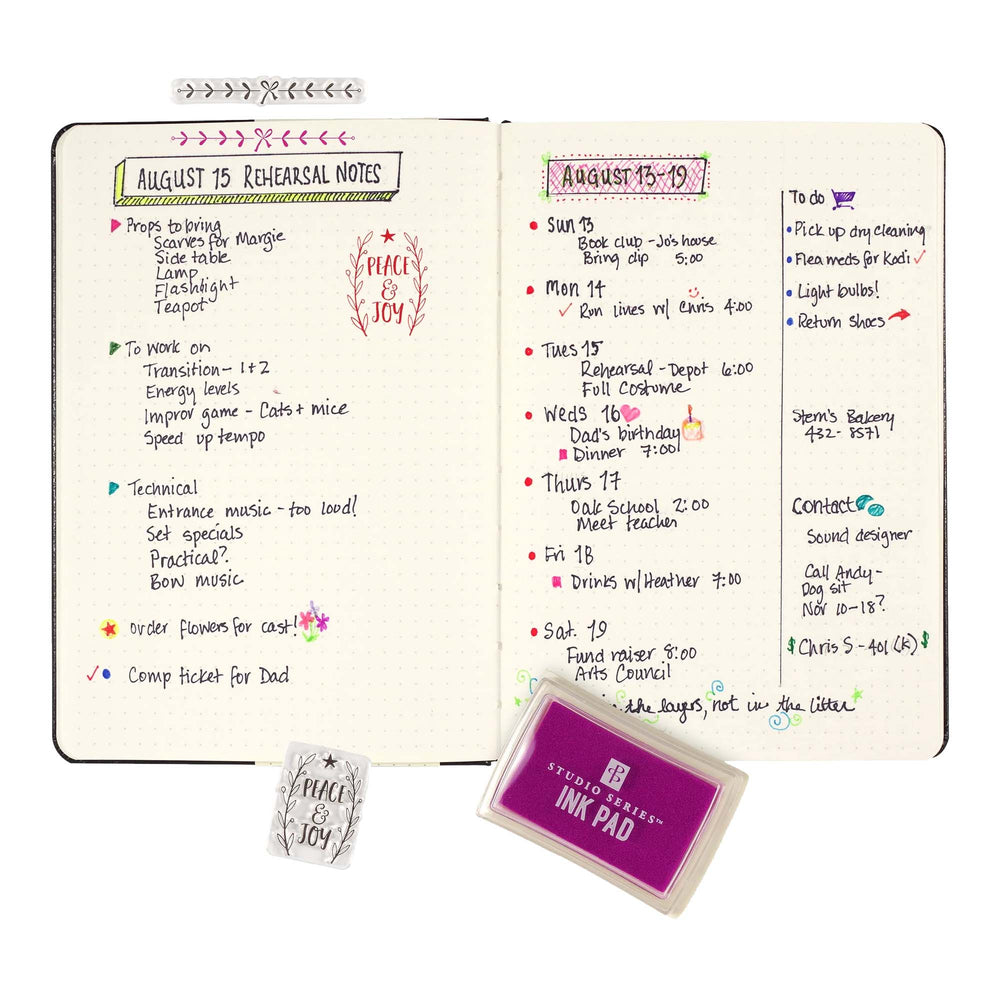 AUGUST 15 REHEARSAL NOTES
Props to bring
Scarves for Margie
Side table
Lamp
Flashlight
Teapot
PEACE
&
JOY
To work on
Transition - 1+2
Energy levels
Improv game - Cats + mice
Speed up tempo
Technical
Entrance music - too loud!
Set specials
Practical?
Bow music
order flowers for cast!
Comp ticket for Dad
AUGUST 13-19
Sun 13
Book club - Jo's house
Bring dip 5:00
Mon 14
Run lines w/ Chris 4:00
Tues 15
Rehearsal - Depot 6:00
Full Costume
Weds 16
Dad's birthday
Dinner 7:00
Thurs 17
Oak School 2:00
Meet teacher
Fri 18
Drinks w/ Heather 7:00
Sat. 19
Fund raiser 8:00
Arts Council
the layers, not in the litter
To do
Pick up dry cleaning
Flea meds for Kodi
Light bulbs!
Return Shoes
Stern's Bakery
432-8571
Contact
Sound designer
Call Andy-
Dog sit
Nov 10-18?
$ Chris S - 401(k) $
PEACE
&
JOY
STUDIO SERIES™
INK PAD